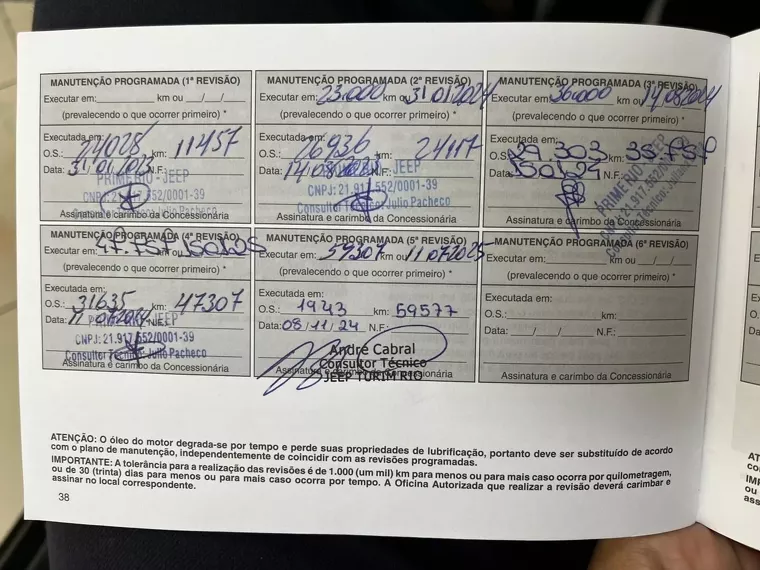 MANUTENÇÃO PROGRAMADA (1ª REVISÃO)
Executar em: km ou __/__/__
(prevalecendo o que ocorrer primeiro) *
Executada em:
O.S.: 24028 km: 11457
Data: 31/01/2023 N.F.:
PRIME RIO - JEEP
CNPJ: 21.917.552/0001-39
Assinatura e carimbo da Concessionária
MANUTENÇÃO PROGRAMADA (2ª REVISÃO)
Executar em: 23.000 km ou 31/01/2024
(prevalecendo o que ocorrer primeiro) *
Executada em:
O.S.: 26936 km: 24117
Data: 14/08/2023 N.F.:
JEEP
CNPJ: 21.917.552/0001-39
Consultor Técnico Julio Pacheco
Assinatura e carimbo da Concessionária
MANUTENÇÃO PROGRAMADA (3ª REVISÃO)
Executar em: 36.000 km ou 14/08/2024
(prevalecendo o que ocorrer primeiro) *
Executada em:
O.S.: 29.303 km: 35.757
Data: N.F.:
PRIME RIO - JEEP
Assinatura e carimbo da Concessionária
MANUTENÇÃO PROGRAMADA (4ª REVISÃO)
Executar em: 47.757 km ou
(prevalecendo o que ocorrer primeiro) *
Executada em:
O.S.: 31635 km: 47307
Data: 11/07/2024 N.F.:
JEEP
CNPJ: 21.917.552/0001-39
Consultor Técnico Julio Pacheco
Assinatura e carimbo da Concessionária
MANUTENÇÃO PROGRAMADA (5ª REVISÃO)
Executar em: 59307 km ou 11/07/2025
(prevalecendo o que ocorrer primeiro) *
Executada em:
O.S.: 1943 km: 59577
Data: 08/11/24 N.F.:
André Cabral
Consultor Técnico
JEEP TURIM RIO
Assinatura e carimbo da Concessionária
MANUTENÇÃO PROGRAMADA (6ª REVISÃO)
Executar em: km ou __/__/__
(prevalecendo o que ocorrer primeiro) *
Executada em:
O.S.: km:
Data: __/__/__ N.F.:
Assinatura e carimbo da Concessionária
ATENÇÃO: O óleo do motor degrada-se por tempo e perde suas propriedades de lubrificação, portanto deve ser substituído de acordo
com o plano de manutenção, independentemente de coincidir com as revisões programadas.
IMPORTANTE: A tolerância para a realização das revisões é de 1.000 (um mil) km para menos ou para mais caso ocorra por quilometragem,
ou de 30 (trinta) dias para menos ou para mais caso ocorra por tempo. A Oficina Autorizada que realizar a revisão deverá carimbar e
assinar no local correspondente.
38